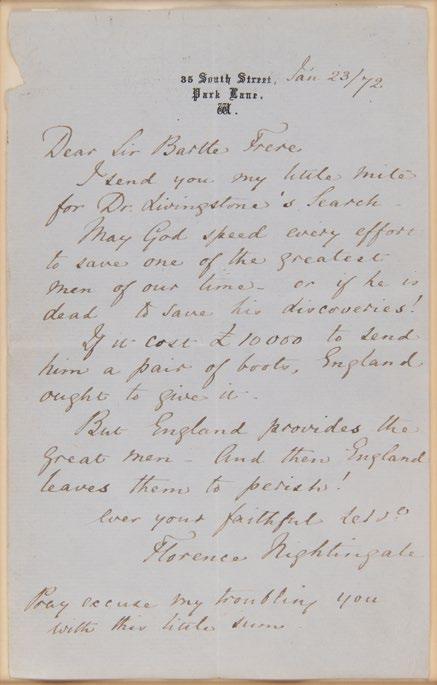 35 South Street, Jan 23/72
Park Lane.
W.
Dear Sir Bartle Frere
I send you my little mite
for Dr. Livingstone's Search -
May God speed every effort
to save one of the greatest
men of our time - or if he is
dead to save his discoveries!
If it cost £10000 to send
him a pair of boots, England
ought to give it -
But England provides the
great men - And then England
leaves them to perish!
ever your faithful servt
Florence Nightingale
Pray excuse my troubling you
with this little sum